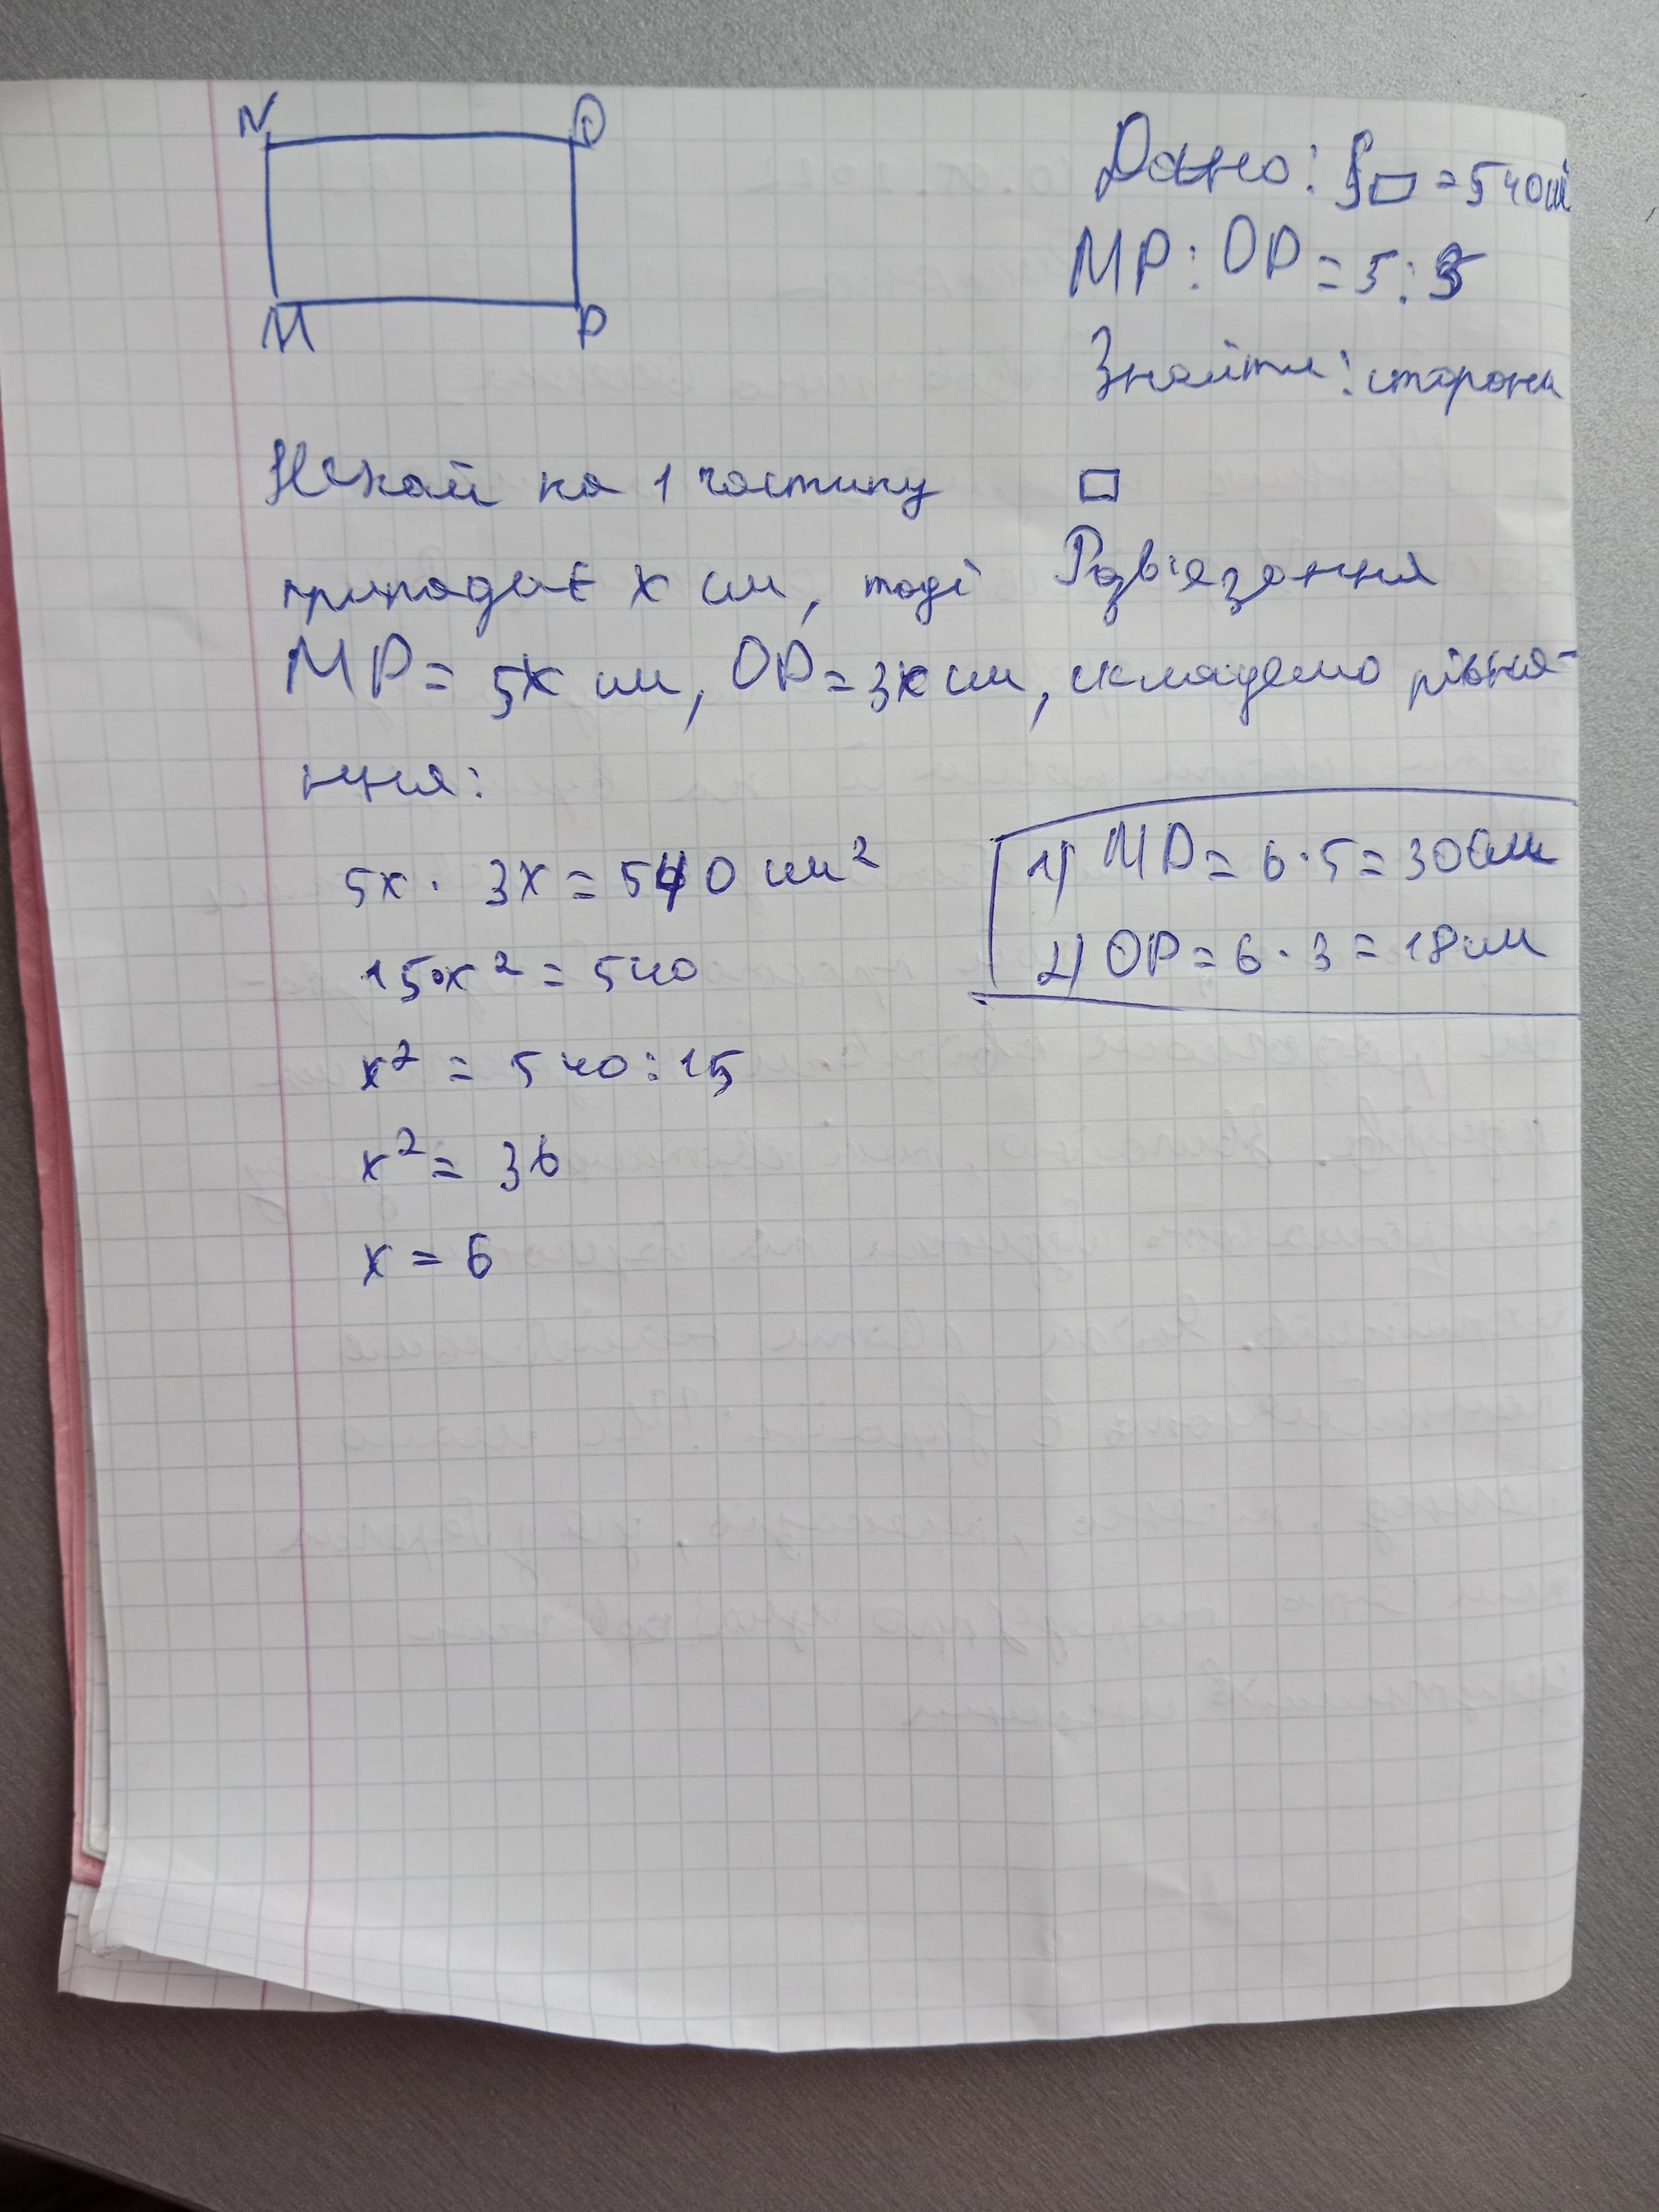 N O
M P
Дано: S▭ = 540 см
MP : OP = 5 : 3
Знайти: сторони
▭
Розв'язання
Нехай на 1 частину
припадає x см, тоді
MP = 5x см, OP = 3x см, складемо рівня-
ння:
5x · 3x = 540 см²
15x² = 540
x² = 540 : 15
x² = 36
x = 6
1) MP = 6 · 5 = 30 см
2) OP = 6 · 3 = 18 см